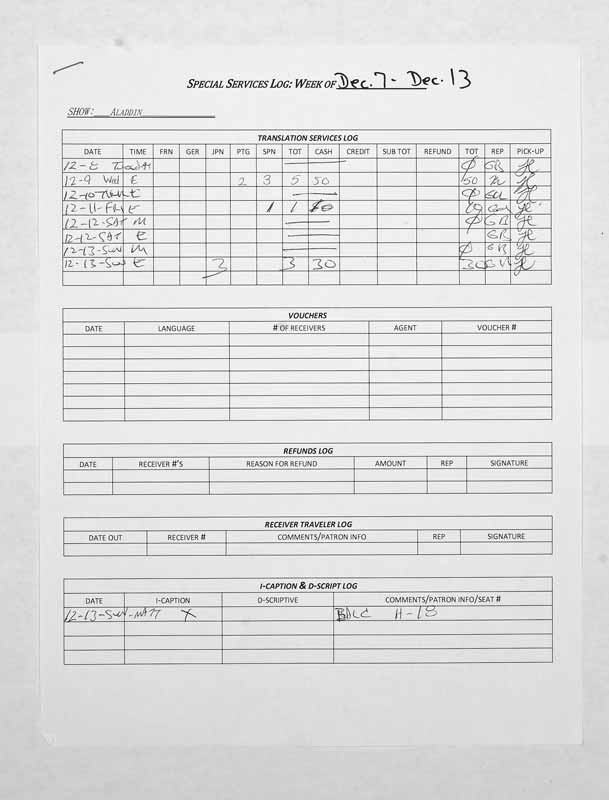 SPECIAL SERVICES LOG: WEEK OF Dec. 7 - Dec. 13
SHOW: ALADDIN
TRANSLATION SERVICES LOG
DATE TIME FRN GER JPN PTG SPN TOT CASH CREDIT SUB TOT REFUND TOT REP PICK-UP
12-8 Ø GB
12-9 Wed E 2 3 5 50 50
12-10 E Ø
12-11-FRI E 1 1 10
12-12-SAT M Ø GB
12-12-SAT E GB
12-13-SUN M Ø GB
12-13-SUN E 3 3 30 30
VOUCHERS
DATE LANGUAGE # OF RECEIVERS AGENT VOUCHER #
REFUNDS LOG
DATE RECEIVER #'S REASON FOR REFUND AMOUNT REP SIGNATURE
RECEIVER TRAVELER LOG
DATE OUT RECEIVER # COMMENTS/PATRON INFO REP SIGNATURE
I-CAPTION & D-SCRIPT LOG
DATE I-CAPTION D-SCRIPTIVE COMMENTS/PATRON INFO/SEAT #
12-13-SUN-MATT X BALC H-18